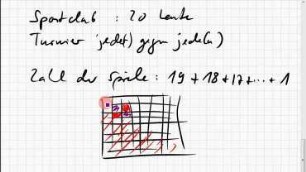 Sportclub : 20 Leute
Turnier jede(r) gegen jede(n)
Zahl der Spiele : 19 + 18 + 17 + ... + 1